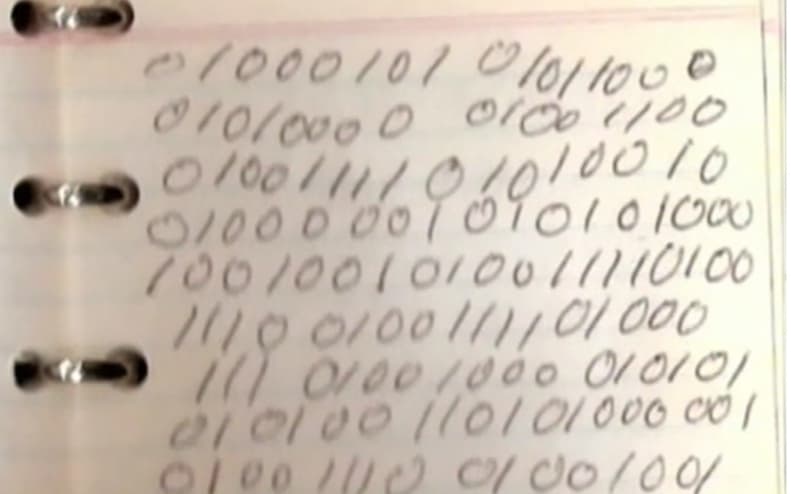 01000101 01011000
01010000 01001100
01001111 01010010
01000001 010101000
1001001010011110100
1110 0100111101000
111 01001000 010101
010100 110101000 001
01001110 01001001